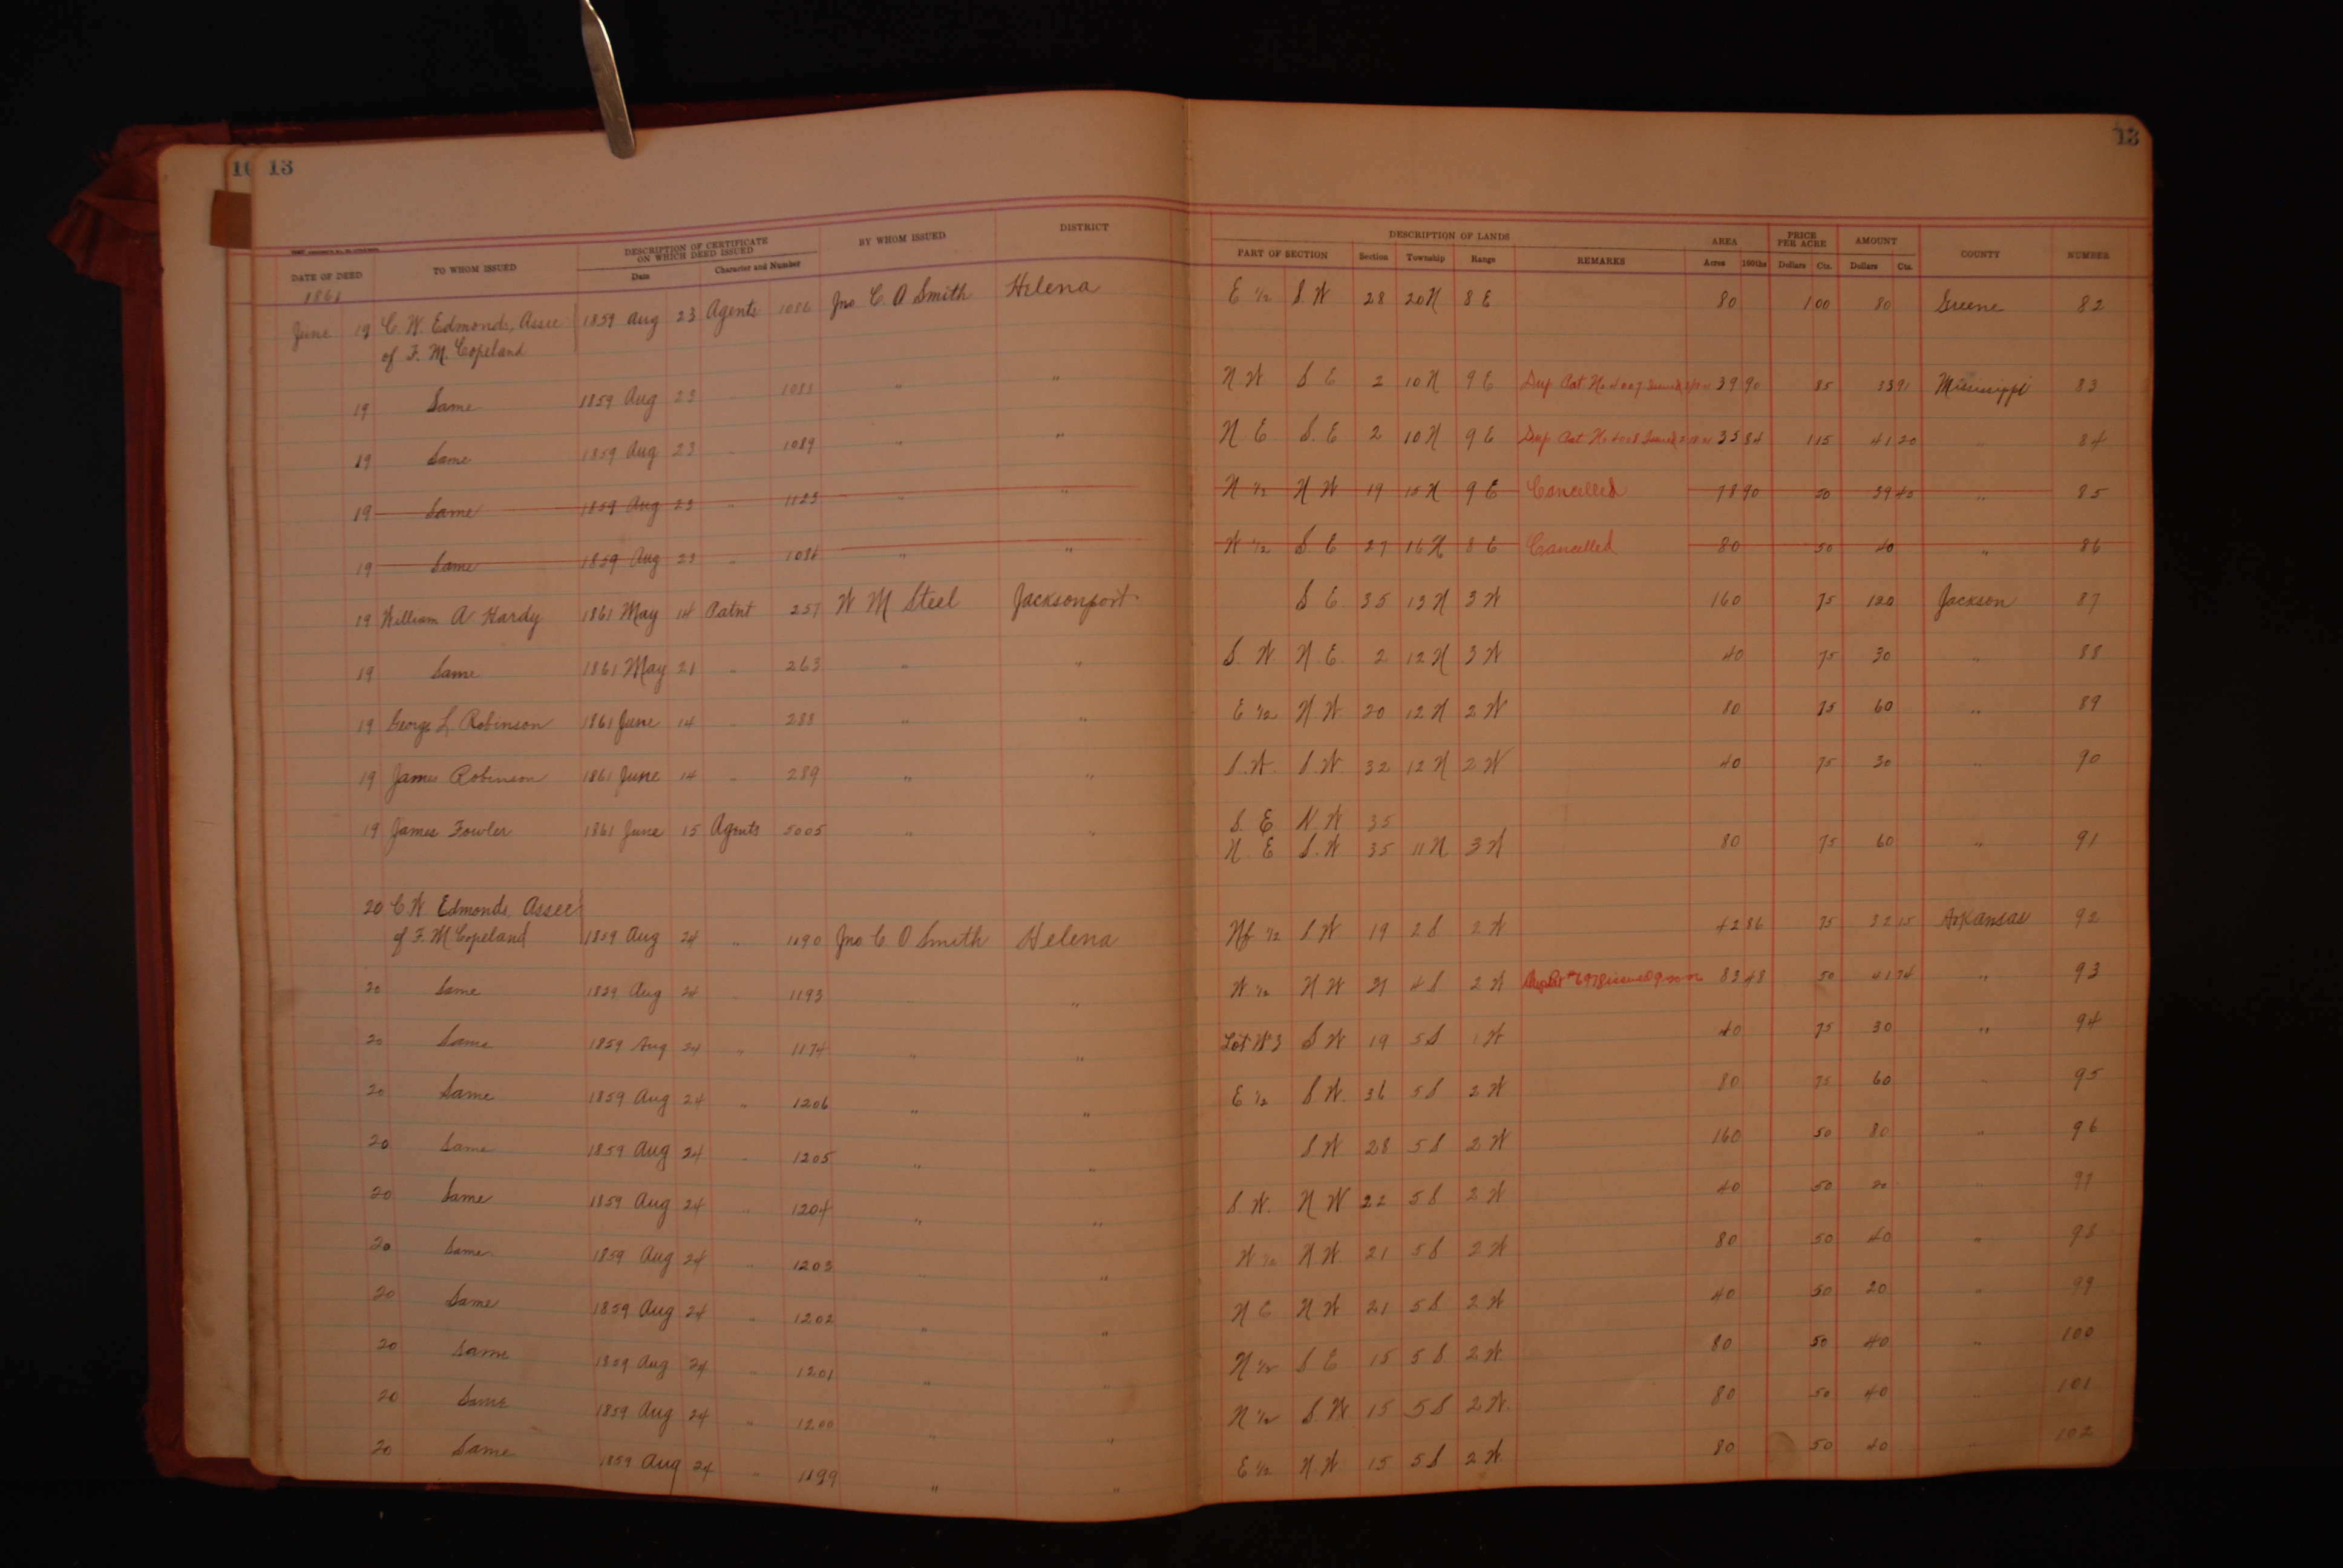 10 13 13
DESCRIPTION OF CERTIFICATE ON WHICH DEED ISSUED BY WHOM ISSUED DISTRICT DESCRIPTION OF LANDS AREA PRICE PER ACRE AMOUNT
DATE OF DEED TO WHOM ISSUED Date Character and Number PART OF SECTION Section Township Range REMARKS Acres 100ths Dollars Cts. Dollars Cts. COUNTY NUMBER
1861
June 19 C W. Edmonds, Assee 1859 Aug 23 Agents 1086 Jno C. O Smith Helena E ½ S. W 28 20 N 8 E 80 1 00 80 Greene 82
of F. M. Copeland
19 Same 1859 Aug 23 " 1088 " " N W S E 2 10 N 9 E Dup. Pat. No 4007 Issued 39 90 85 33 91 Mississippi 83
19 Same 1859 Aug 23 " 1089 " " N E S. E 2 10 N 9 E Dup. Pat. No 4008 Issued 35 84 1 15 41 20 " 84
19 Same 1859 Aug 23 " 1123 " " N ½ N W 19 15 N 9 E Cancelled 78 90 50 39 45 " 85
19 Same 1859 Aug 23 " 1086 " " W ½ S E 27 16 N 8 E Cancelled 80 50 40 " 86
19 William A Hardy 1861 May 14 Patnt 257 W M Steel Jacksonport S. E. 35 13 N 3 W 160 75 120 Jackson 87
19 Same 1861 May 21 " 263 " " S. W N. E. 2 12 N 3 W 40 75 30 " 88
19 George L Robinson 1861 June 14 " 288 " " E ½ N. W 20 12 N 2 W 80 75 60 " 89
19 James Robinson 1861 June 14 " 289 " " S. W. S. W 32 12 N 2 W 40 75 30 " 90
19 James Fowler 1861 June 15 Agents 5005 " " S. E N. W 35
N. E S. W 35 11 N 3 W 80 75 60 " 91
20 C. W. Edmonds, Assee
of F. M Copeland 1859 Aug 24 " 1190 Jno C O Smith Helena ½ S W 19 2 S 2 W 42 86 75 32 15 Arkansas 92
20 Same 1859 Aug 24 " 1193 " W ½ N W 31 4 S 2 W 83 48 50 41 74 " 93
20 Same 1859 Aug 24 " 1174 " " Lot No 3 S W 19 5 S 1 W 40 75 30 " 94
20 Same 1859 Aug 24 " 1206 " " E ½ S W. 36 5 S 2 W 80 75 60 " 95
20 Same 1859 Aug 24 " 1205 " " S W 28 5 S 2 W 160 50 80 " 96
20 Same 1859 Aug 24 " 1204 " " S W. N W 22 5 S 2 W 40 50 20 " 97
20 Same 1859 Aug 24 " 1203 " " W ½ N W 21 5 S 2 W 80 50 40 " 98
20 Same 1859 Aug 24 " 1202 " " N E N W 21 5 S 2 W 40 50 20 " 99
20 Same 1859 Aug 24 " 1201 " " N ½ S E 15 5 S 2 W 80 50 40 " 100
20 Same 1859 Aug 24 " 1200 " " N ½ S. W 15 5 S 2 W. 80 50 40 " 101
20 Same 1859 Aug 24 " 1199 " " E ½ N. W. 15 5 S 2 W 80 50 40 102